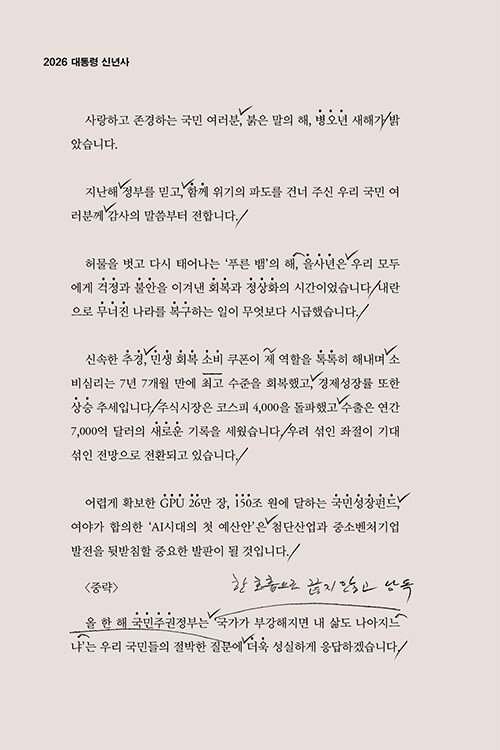 2026 대통령 신년사
사랑하고 존경하는 국민 여러분, 붉은 말의 해, 병오년 새해가 밝
았습니다.
지난해 정부를 믿고, 함께 위기의 파도를 건너 주신 우리 국민 여
러분께 감사의 말씀부터 전합니다.
허물을 벗고 다시 태어나는 ‘푸른 뱀’의 해, 을사년은 우리 모두
에게 걱정과 불안을 이겨낸 회복과 정상화의 시간이었습니다. 내란
으로 무너진 나라를 복구하는 일이 무엇보다 시급했습니다.
신속한 추경, 민생 회복 소비 쿠폰이 제 역할을 톡톡히 해내며 소
비심리는 7년 7개월 만에 최고 수준을 회복했고, 경제성장률 또한
상승 추세입니다. 주식시장은 코스피 4,000을 돌파했고 수출은 연간
7,000억 달러의 새로운 기록을 세웠습니다. 우려 섞인 좌절이 기대
섞인 전망으로 전환되고 있습니다.
어렵게 확보한 GPU 26만 장, 150조 원에 달하는 국민성장펀드,
여야가 합의한 ‘AI시대의 첫 예산안’은 첨단산업과 중소벤처기업
발전을 뒷받침할 중요한 발판이 될 것입니다.
〈중략〉 한 호흡으로 끊지 말고 낭독
올 한 해 국민주권정부는 ‘국가가 부강해지면 내 삶도 나아지느
냐’는 우리 국민들의 절박한 질문에 더욱 성실하게 응답하겠습니다.